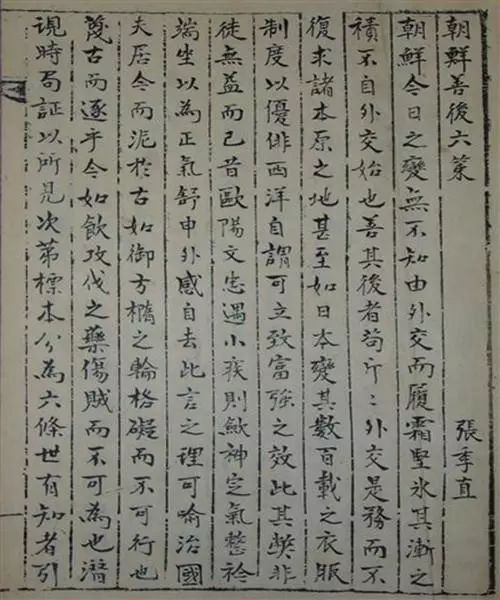 朝鮮善後六策
張季直
朝鮮今日之變無不知由外交而履霜堅氷其漸之
積不自外交始也善其後者苟斤〻外交是務而不
復求諸本原之地甚至如日本變其數百載之衣服
制度以優俳西洋自謂可立致富強之效此其獘非
徒無益而已昔歐陽文忠遇小疾則斂神定氣整衿
端坐以為正氣舒申外感自去此言之理可喻治國
夫居今而泥於古如御方橢之輪格礙而不可行也
蔑古而逐乎今如飲攻伐之藥傷賊而不可為也潛
視時局証以所見次第標本分為六條世有知者引